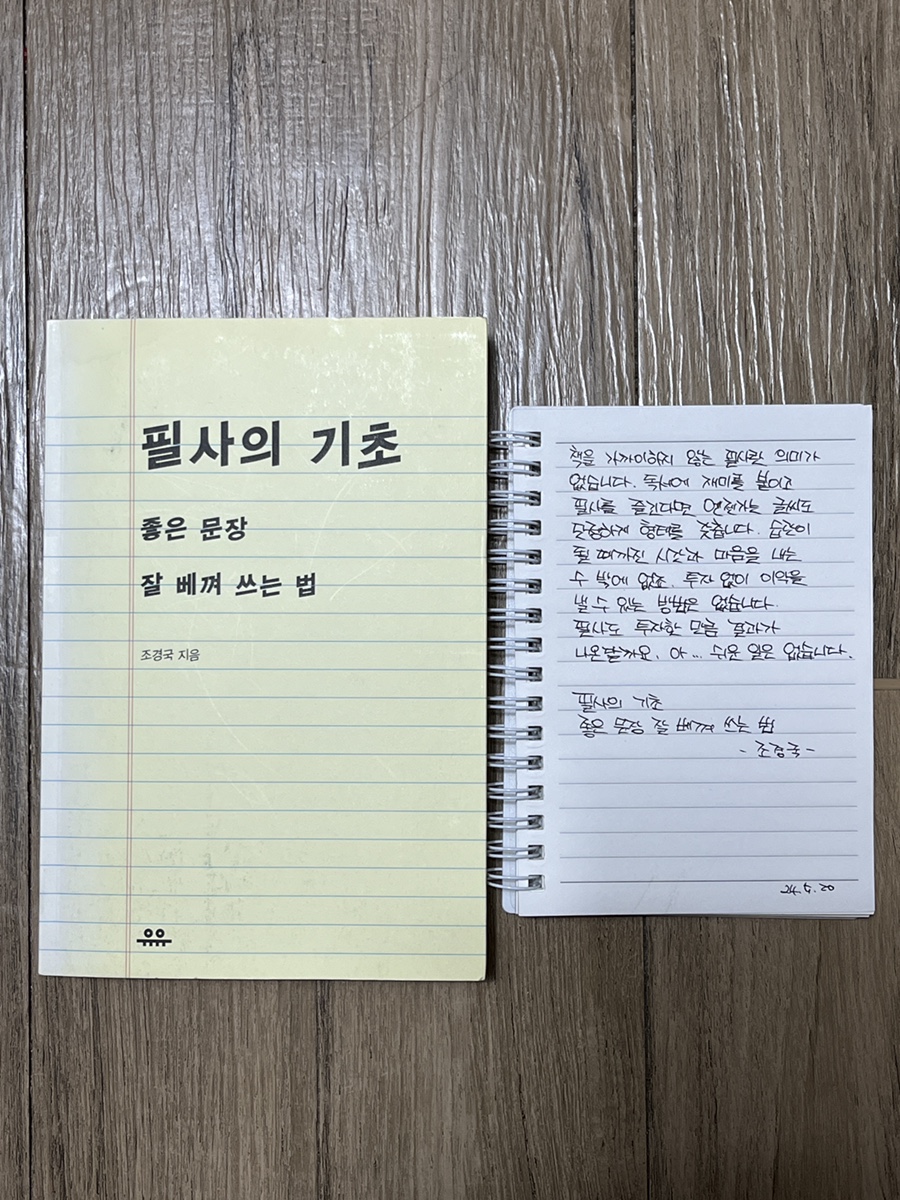 필사의 기초
좋은 문장
잘 베껴 쓰는 법
조경국 지음
유유
책을 가까이하지 않는 필사란 의미가
없습니다. 독서에 재미를 붙이고
필사를 즐긴다면 언젠가는 글씨도
단정하게 형태를 갖춥니다. 습관이
될 때까진 시간과 마음을 내는
수 밖에 없죠. 투자 없이 이익을
낼 수 있는 방법은 없습니다.
필사도 투자한 만큼 결과가
나온달까요. 아... 쉬운 일은 없습니다.
필사의 기초
좋은 문장 잘 베껴 쓰는 법
- 조경국 -
24.5.20